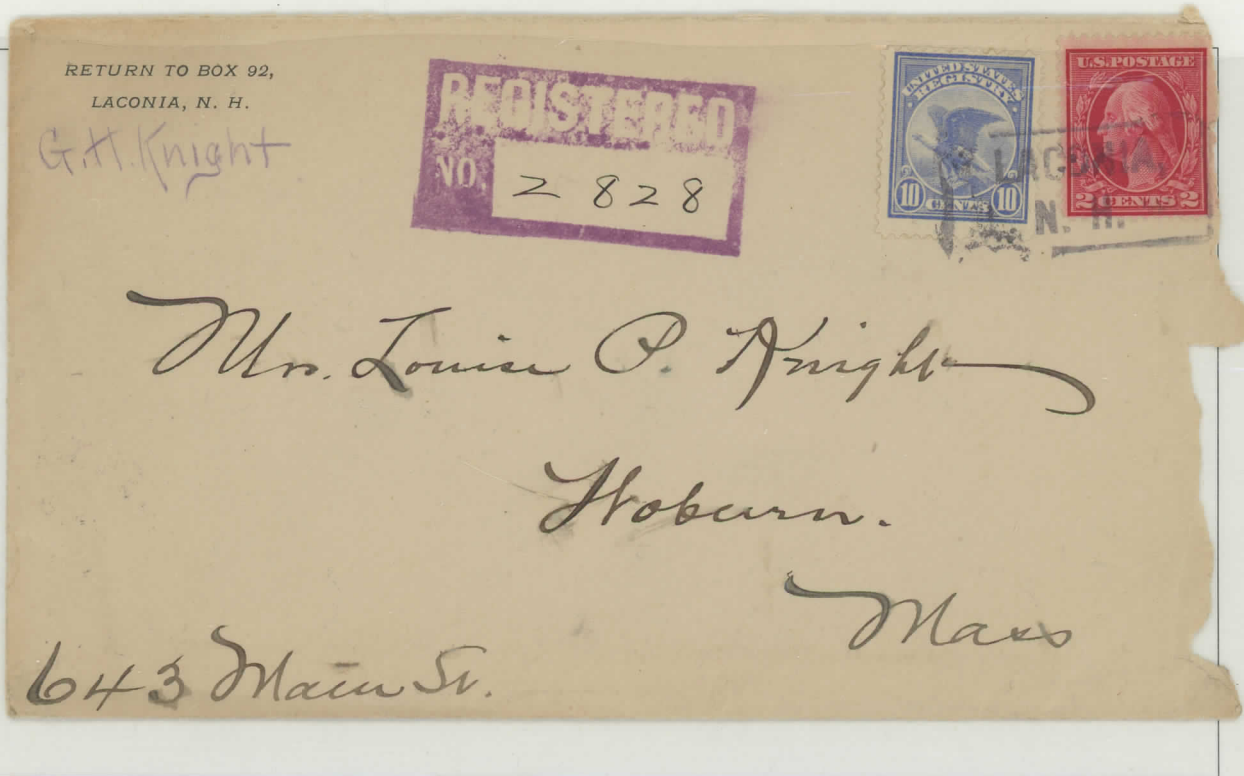 RETURN TO BOX 92,
LACONIA, N. H.
G. H. Knight
REGISTERED
NO. 2828
UNITED STATES
REGISTRY
10 CENTS 10
U.S. POSTAGE
2 CENTS 2
LACONIA,
N. H.
Mrs. Louise P. Knight
Woburn.
Mass
643 Main St.